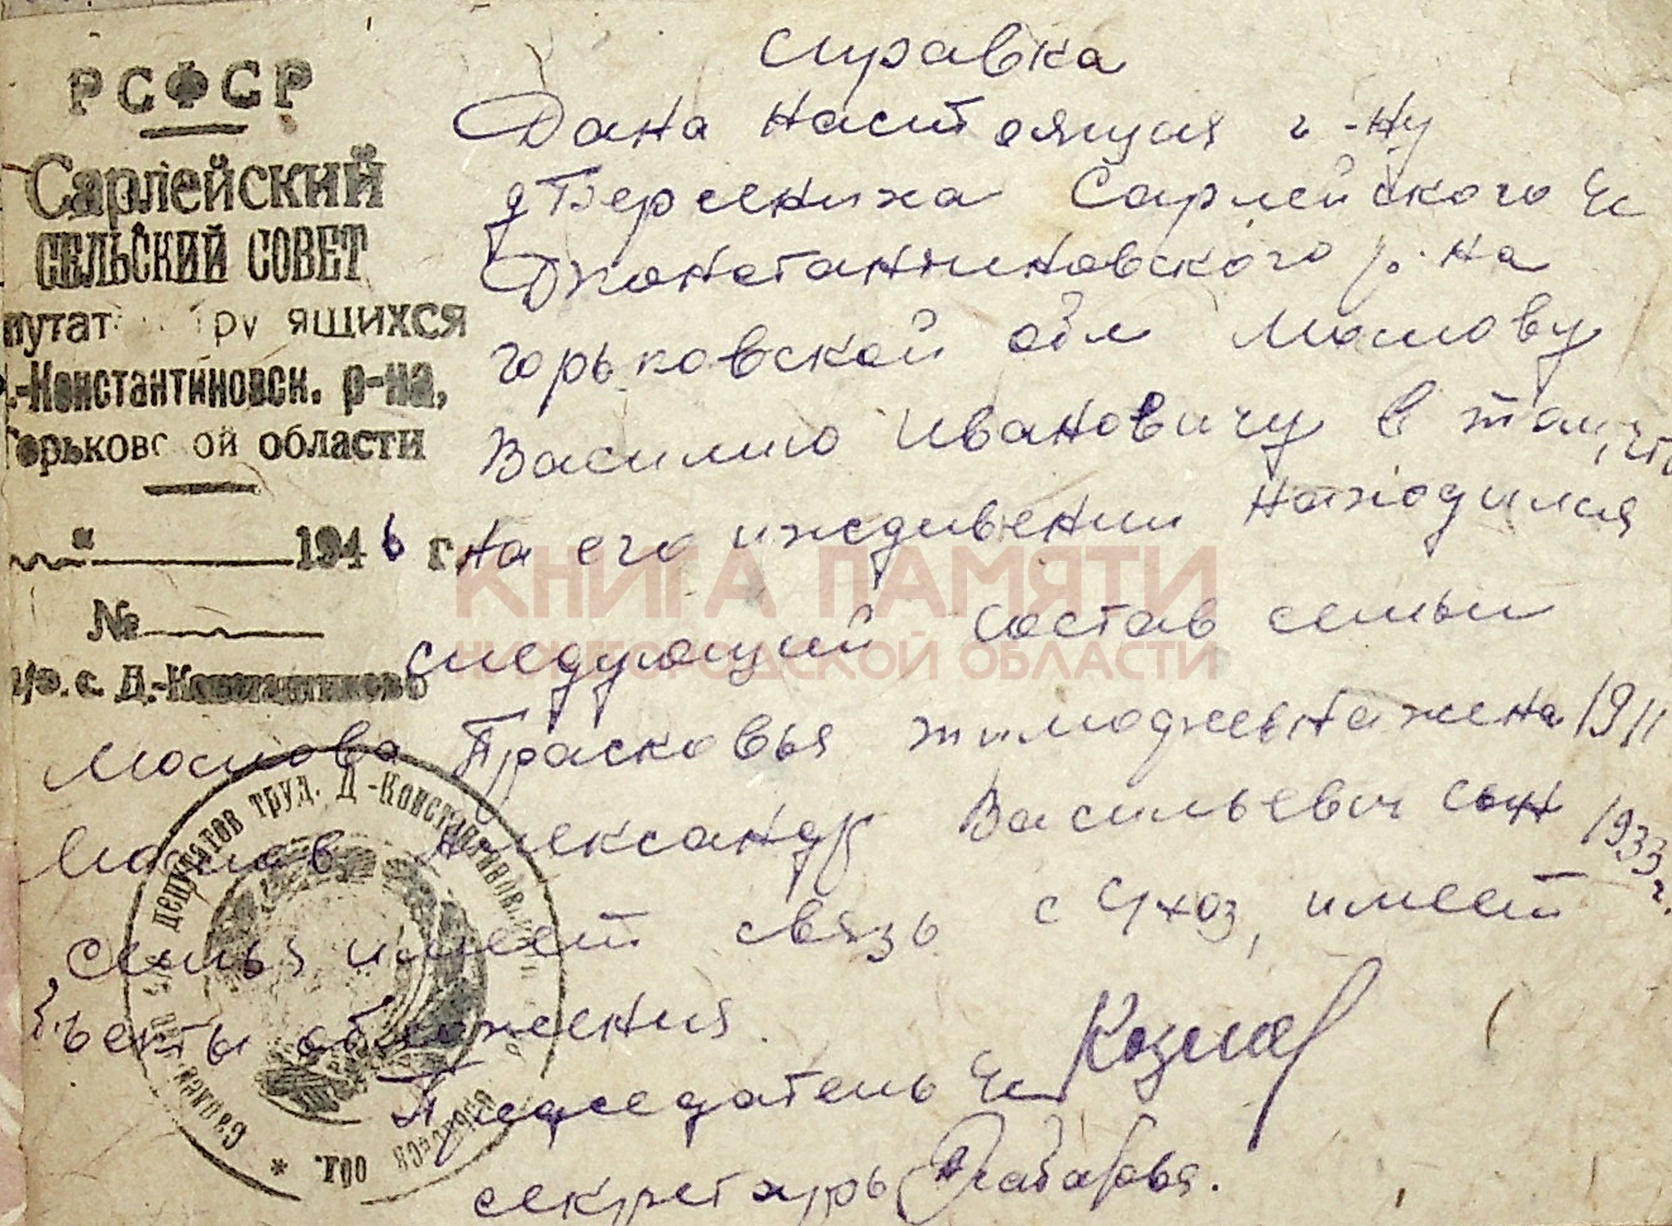 РСФСР
Сарлейский
СЕЛЬСКИЙ СОВЕТ
путат ру ящихся
.-Константиновск. р-на,
Горьковс ой области
" 1946 г.
№
п/о. с. Д.-Константиново
справка
Дана настоящия г-ну
д Берсениха Сарлейского с/с
Дконстантиновского р-на
горьковской обл Маслову
Василию Ивановичу в том, что
на его иждивении находился
следующий состав семьи
Маслова Прасковья жена 1911
Маслов Александр Васильевич сын 1933 г.
семья имеет связь с с/хоз, имеет
бъекты обложения
Председатель с/с Козлов
секретарь
КНИГА ПАМЯТИ
НИЖЕГОРОДСКОЙ ОБЛАСТИ
депутатов труд. Д-Константинов
обл. *